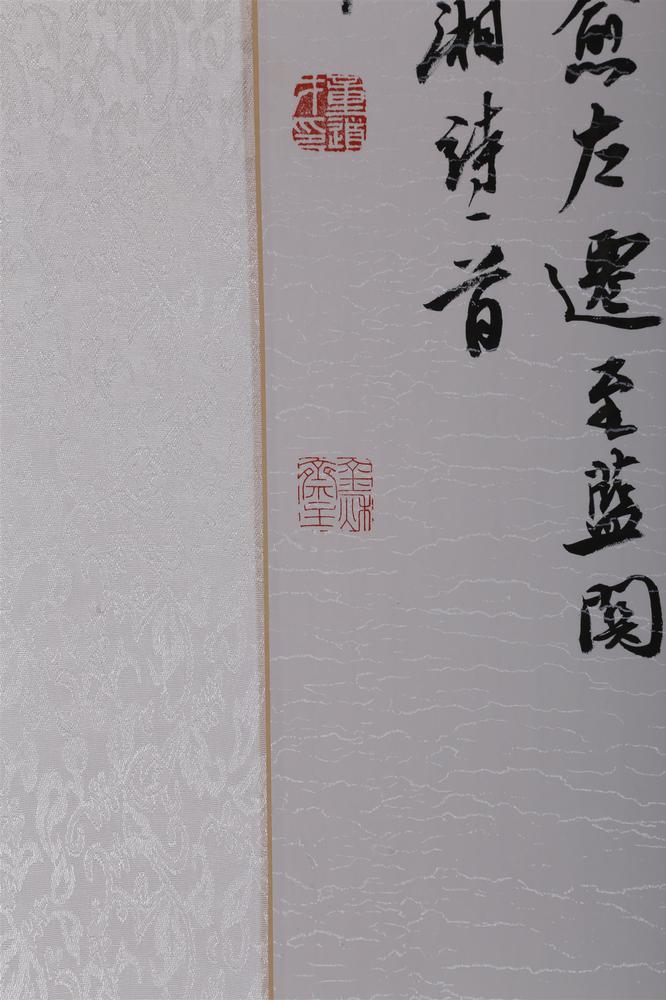 愈左遷至藍関
湘詩一首